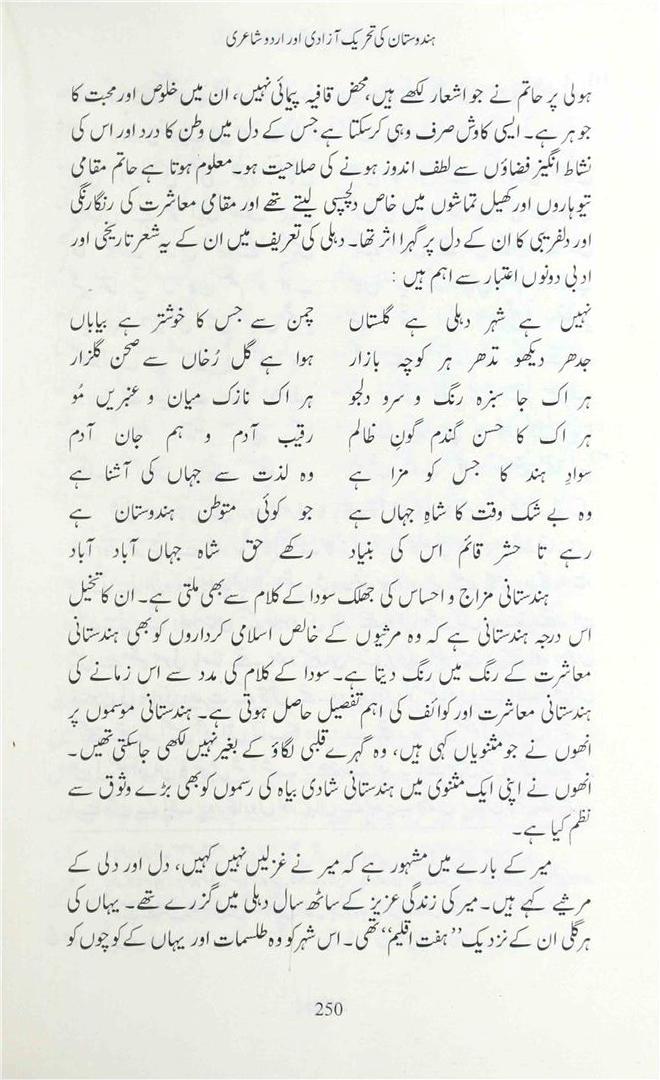 ہندوستان کی تحریک آزادی اور اردو شاعری
ہولی پر حاتم نے جو اشعار لکھے ہیں، محض قافیہ پیمائی نہیں، ان میں خلوص اور محبت کا
جوہر ہے۔ ایسی کاوش صرف وہی کرسکتا ہے جس کے دل میں وطن کا درد اور اس کی
نشاط انگیز فضاؤں سے لطف اندوز ہونے کی صلاحیت ہو۔ معلوم ہوتا ہے حاتم مقامی
تیوہاروں اور کھیل تماشوں میں خاص دلچسپی لیتے تھے اور مقامی معاشرت کی رنگارنگی
اور دلفریبی کا ان کے دل پر گہرا اثر تھا۔ دہلی کی تعریف میں ان کے یہ شعر تاریخی اور
ادبی دونوں اعتبار سے اہم ہیں :
نہیں ہے شہر دہلی ہے گلستاں چمن سے جس کا خوشتر ہے بیاباں
جدھر دیکھو تدھر ہر کوچہ بازار ہوا ہے گل رُخاں سے صحن گلزار
ہر اک جا سبزہ رنگ و سرو دلجو ہر اک نازک میان و عنبریں مُو
ہر اک کا حسن گندم گونِ ظالم رقیب آدم و ہم جان آدم
سوادِ ہند کا جس کو مزا ہے وہ لذت سے جہاں کی آشنا ہے
وہ بے شک وقت کا شاہِ جہاں ہے جو کوئی متوطن ہندوستان ہے
رہے تا حشر قائم اس کی بنیاد رکھے حق شاہ جہاں آباد آباد
ہندستانی مزاج و احساس کی جھلک سودا کے کلام سے بھی ملتی ہے۔ ان کا تخیل
اس درجہ ہندستانی ہے کہ وہ مرثیوں کے خالص اسلامی کرداروں کو بھی ہندستانی
معاشرت کے رنگ میں رنگ دیتا ہے۔ سودا کے کلام کی مدد سے اس زمانے کی
ہندستانی معاشرت اور کوائف کی اہم تفصیل حاصل ہوتی ہے۔ ہندستانی موسموں پر
انھوں نے جو مثنویاں کہی ہیں، وہ گہرے قلبی لگاؤ کے بغیر نہیں لکھی جاسکتی تھیں۔
انھوں نے اپنی ایک مثنوی میں ہندستانی شادی بیاہ کی رسموں کو بھی بڑے وثوق سے
نظم کیا ہے۔
میر کے بارے میں مشہور ہے کہ میر نے غزلیں نہیں کہیں، دل اور دلی کے
مرثیے کہے ہیں۔ میر کی زندگی عزیز کے ساٹھ سال دہلی میں گزرے تھے۔ یہاں کی
ہر گلی ان کے نزدیک ’’ہفت اقلیم‘‘ تھی۔ اس شہر کو وہ طلسمات اور یہاں کے کوچوں کو
250